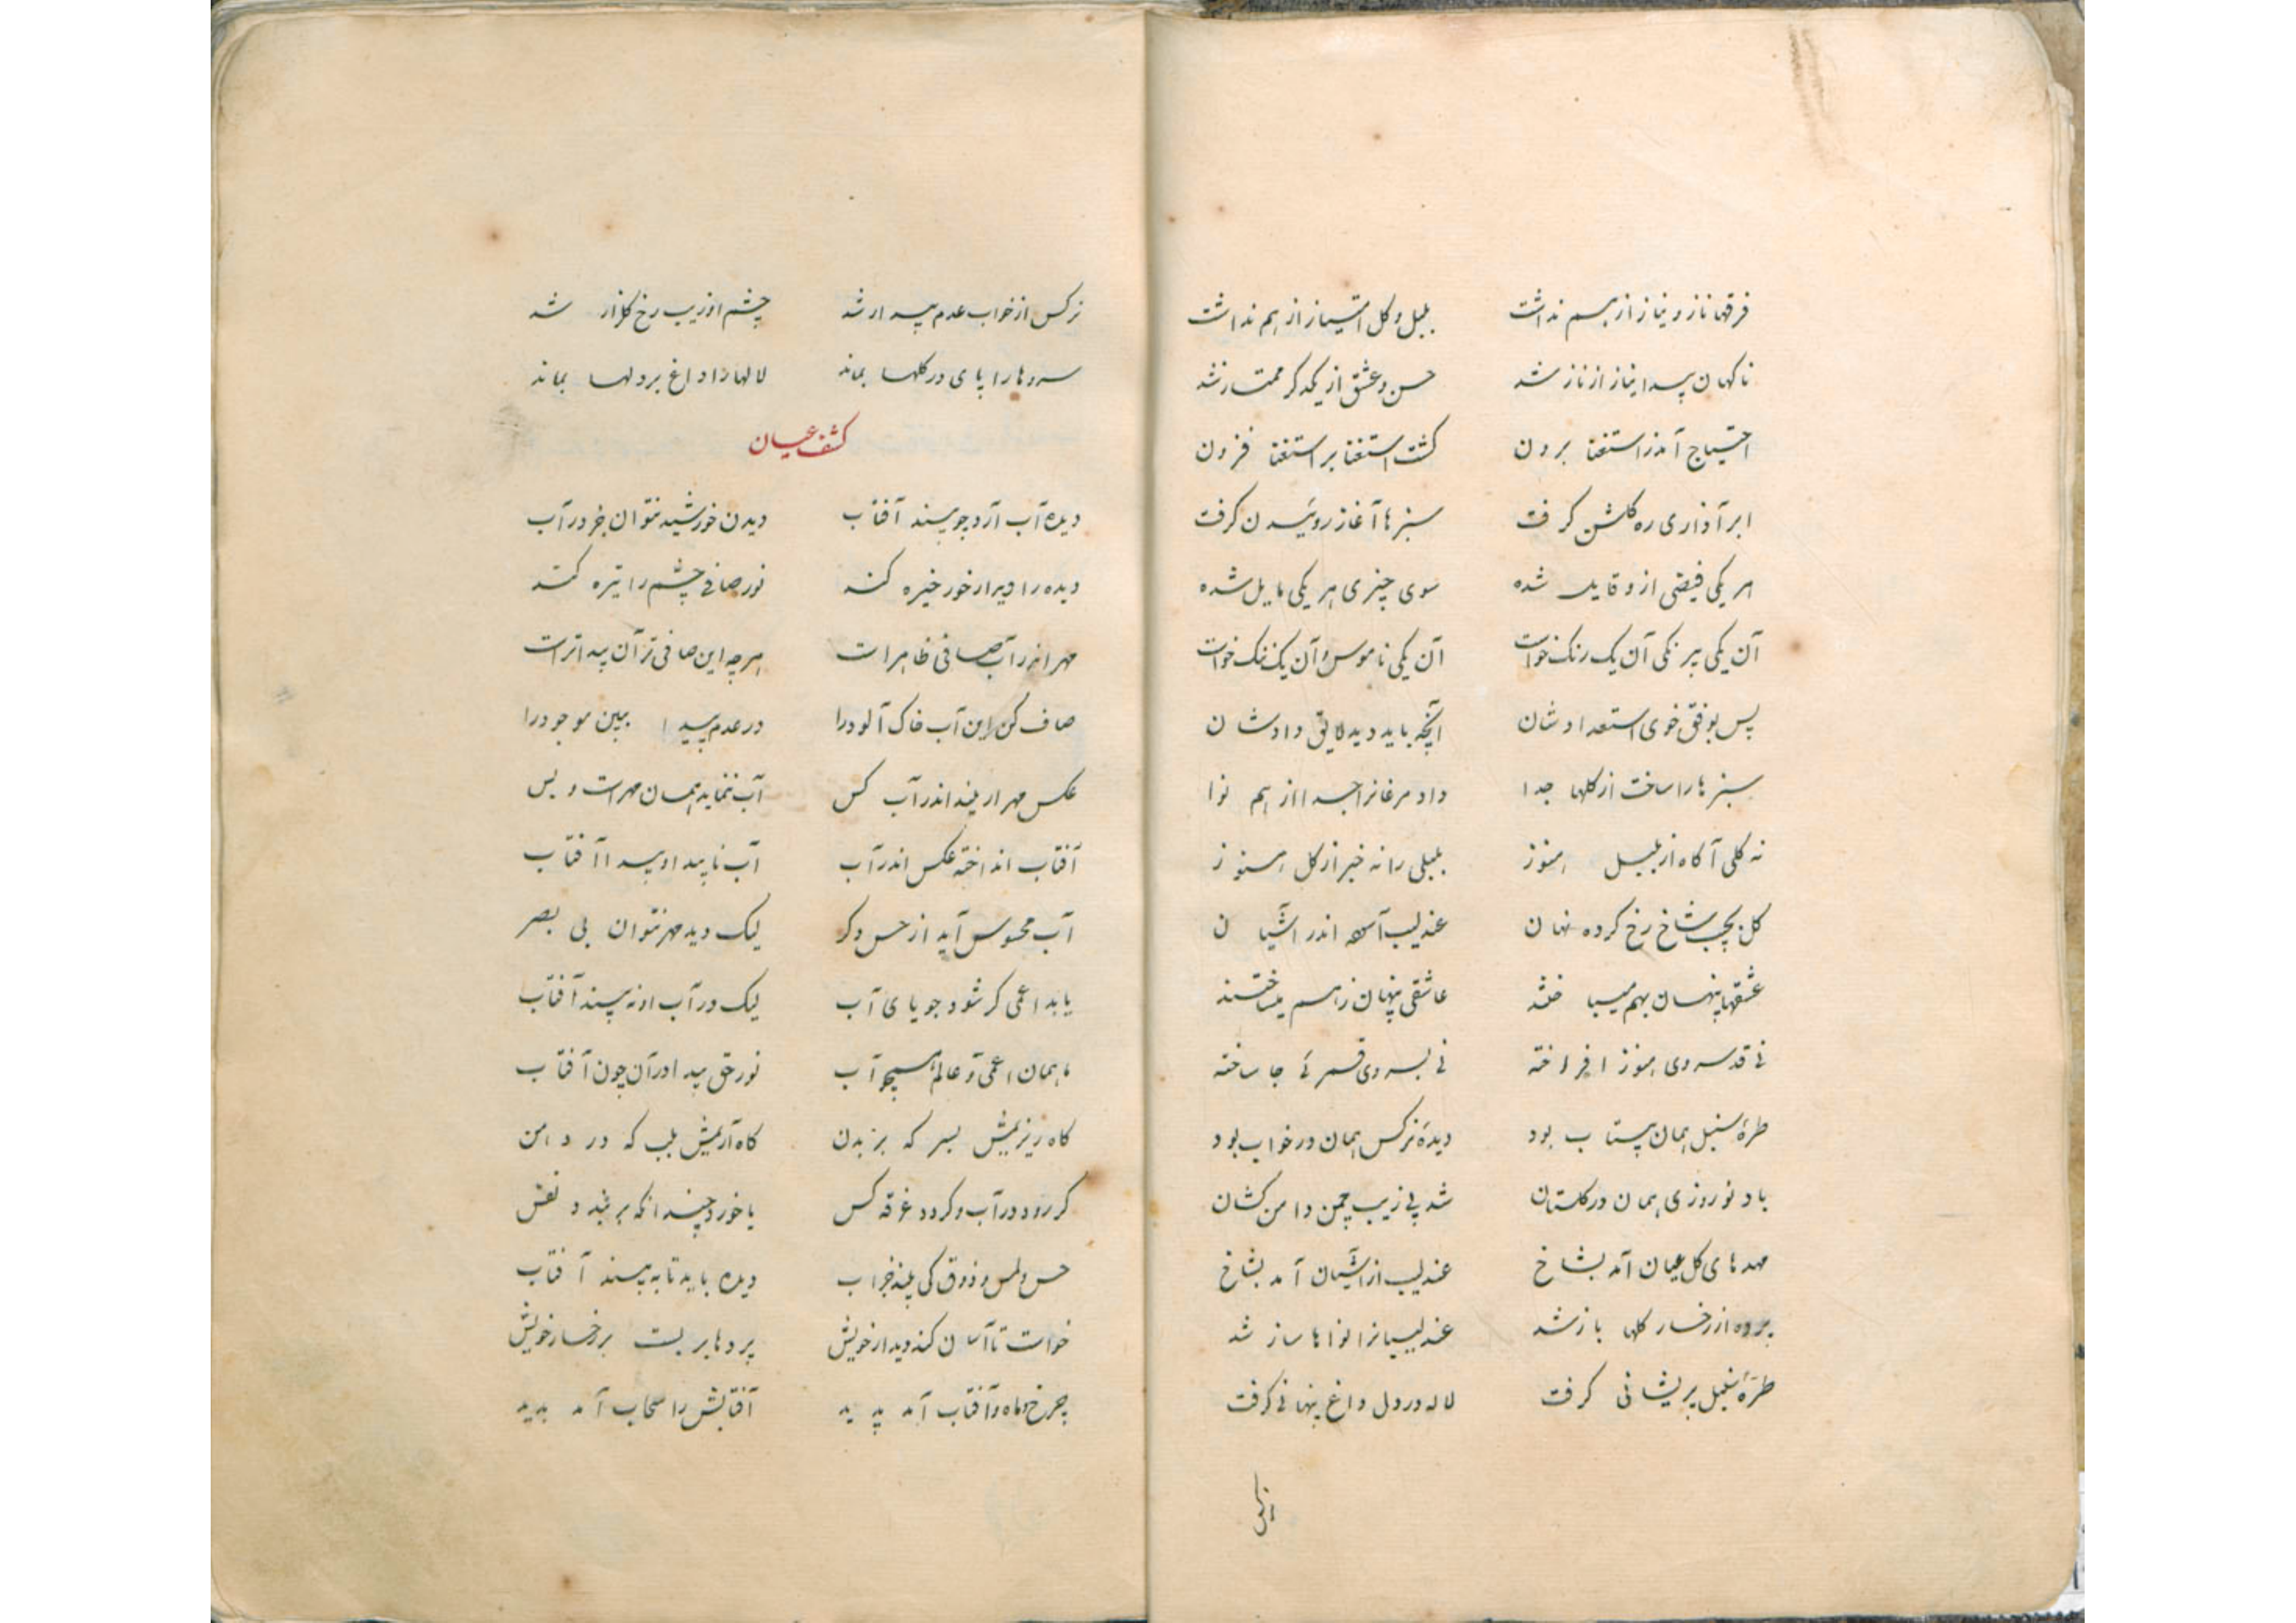 فرقها ناز و نیاز از هم نداشت بلبل و کل امتیاز از هم نداشت
ناکهان پیدا نیاز از ناز شد حسن و عشق از یکدکر ممتاز شد
احتیاج آمد ز استغنا برون کشت استغنا بر استغنا فزون
ابر آذاری ره کلشن کرفت سبزها آغاز روئیدن کرفت
هر یکی فیضی ازو قابل شده سوی چیزی هر یکی مایل شده
آن یکی بیرنکی آن یک رنک خواست آن یکی ناموس و آن یک ننک خواست
پس بوفق خوی استعدادشان آنچه باید دید لایق دادشان
سبزها را ساخت از کلها جدا داد مرغانرا جدا از هم نوا
نه کلی آکاه از بلبل هنوز بلبلی را نه خبر از کل هنوز
کل بچیب شاخ رخ کرده نهان عندلیب آسوده اندر آشیان
عشقها پنهان بهم میباختند عاشقی پنهان ز هم میساختند
نی قد سروی هنوز افراخته نی بسروی قمرئی جا ساخته
طرهٔ سنبل همان بیتاب بود دیدهٔ نرکس همان در خواب بود
باد نوروزی همان در کلستان شد پی زیب چمن دامن کشان
مهدهای کل عیان آمد بشاخ عندلیب از آشیان آمد بشاخ
پرده از رخسار کلها باز شد عندلیبانرا نواها ساز شد
طرهٔ سنبل پریشانی کرفت لاله در دل داغ پنهانی کرفت
نرکس
نرکس از خواب عدم بیدار شد چشم او زیب رخ کلزار شد
سروها را پای در کلها بماند لالها را داغ بر دلها بماند
کشف عیان
دیده آب آرد چو بیند آفتاب دیدن خورشید نتوان جز در آب
دیده را دیدار خور خیره کند نور صافی چشم را تیره کند
مهر اندر آب صافی ظاهر است هر چه این صافی تر آن پیداتر است
صاف کن این آب خاک آلود را در عدم پیدا ببین موجود را
عکس مهر ار بیند اندر آب کس آب ننماید همان مهر است و بس
آفتاب انداخته عکس اندر آب آب ناپیدا و پیدا آفتاب
آب محسوس آید از حس دکر لیک دید مهر نتوان بی بصر
یابد اعمی کر شود جویای آب لیک در آب او نه بیند آفتاب
ما همان اعمی و عالم همچو آب نور حق پیدا در آن چون آفتاب
کاه ریزیمش بسر که بر بدن کاه آریمش بلب که در دهن
کر رود در آب و کردد غرقه کس یا خورد چندانکه بر بندد نفس
حس و لمس و ذوق کی بیند جز آب دیده باید تا به بیند آفتاب
خواست تا آسان کند دیدار خویش پردها بر بست بر رخسار خویش
چرخ و ماه و آفتاب آمد پدید آفتابش را سحاب آمد پدید